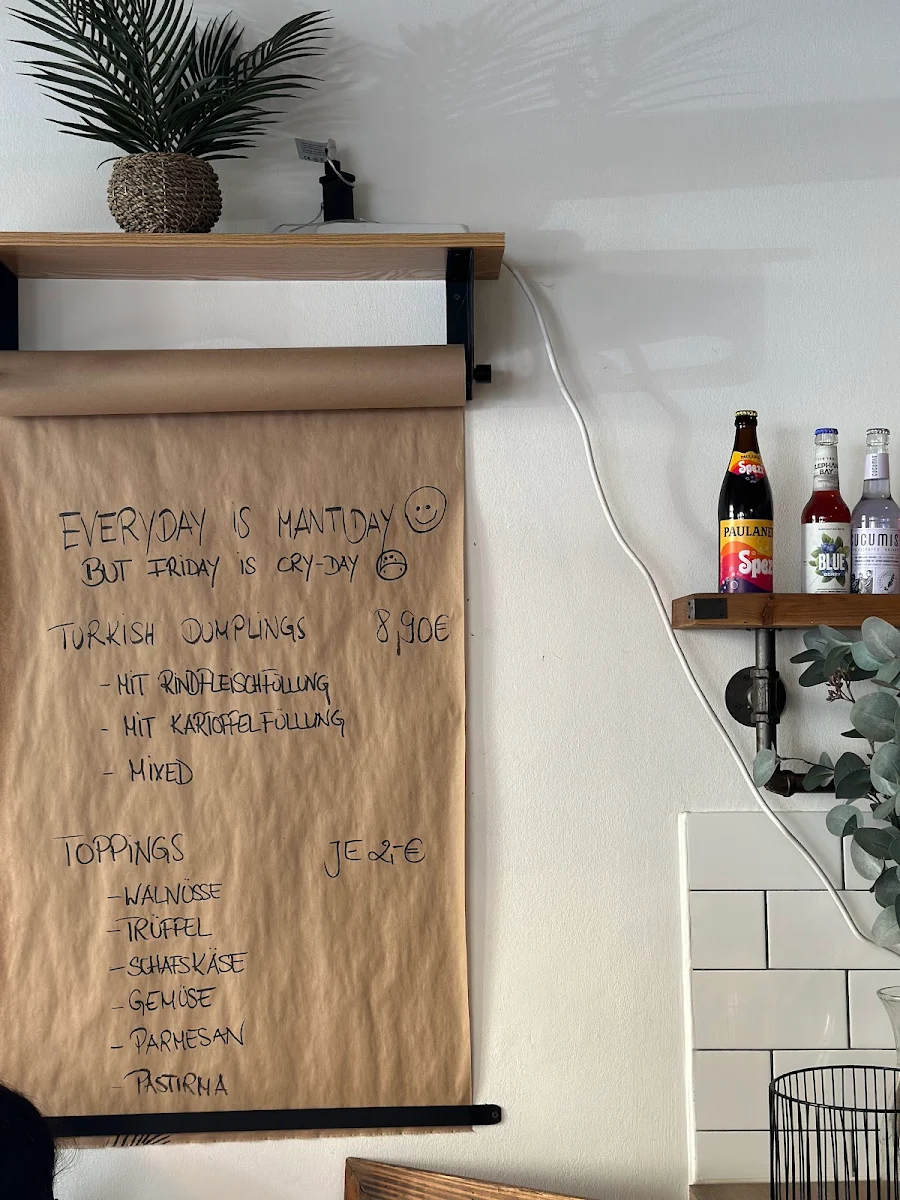 EVERYDAY IS MANTIDAY
BUT FRIDAY IS CRY-DAY
TURKISH DUMPLINGS 8,90€
- MIT RINDFLEISCHFÜLLUNG
- MIT KARTOFFELFÜLLUNG
- MIXED
TOPPINGS JE 2,-€
- WALNÜSSE
- TRÜFFEL
- SCHAFSKÄSE
- GEMÜSE
- PARMESAN
- PASTIRMA
Spezi
PAULANER
Spezi
ELEPHANT
BAY
BLUE
CUCUMIS